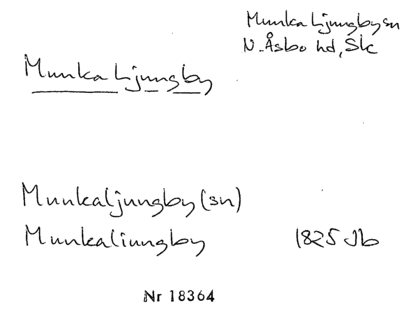 Munka Ljungby sn
N. Åsbo hd, Sk
Munka Ljungby
Munkaljungby (sn)
Munkaliungby 1825 Jb
Nr 18364